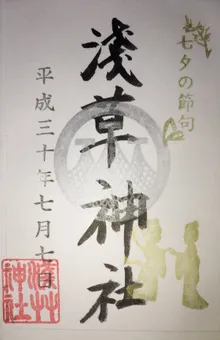 七夕の節句
淺草神社
平成三十年七月七日
淺草
神社